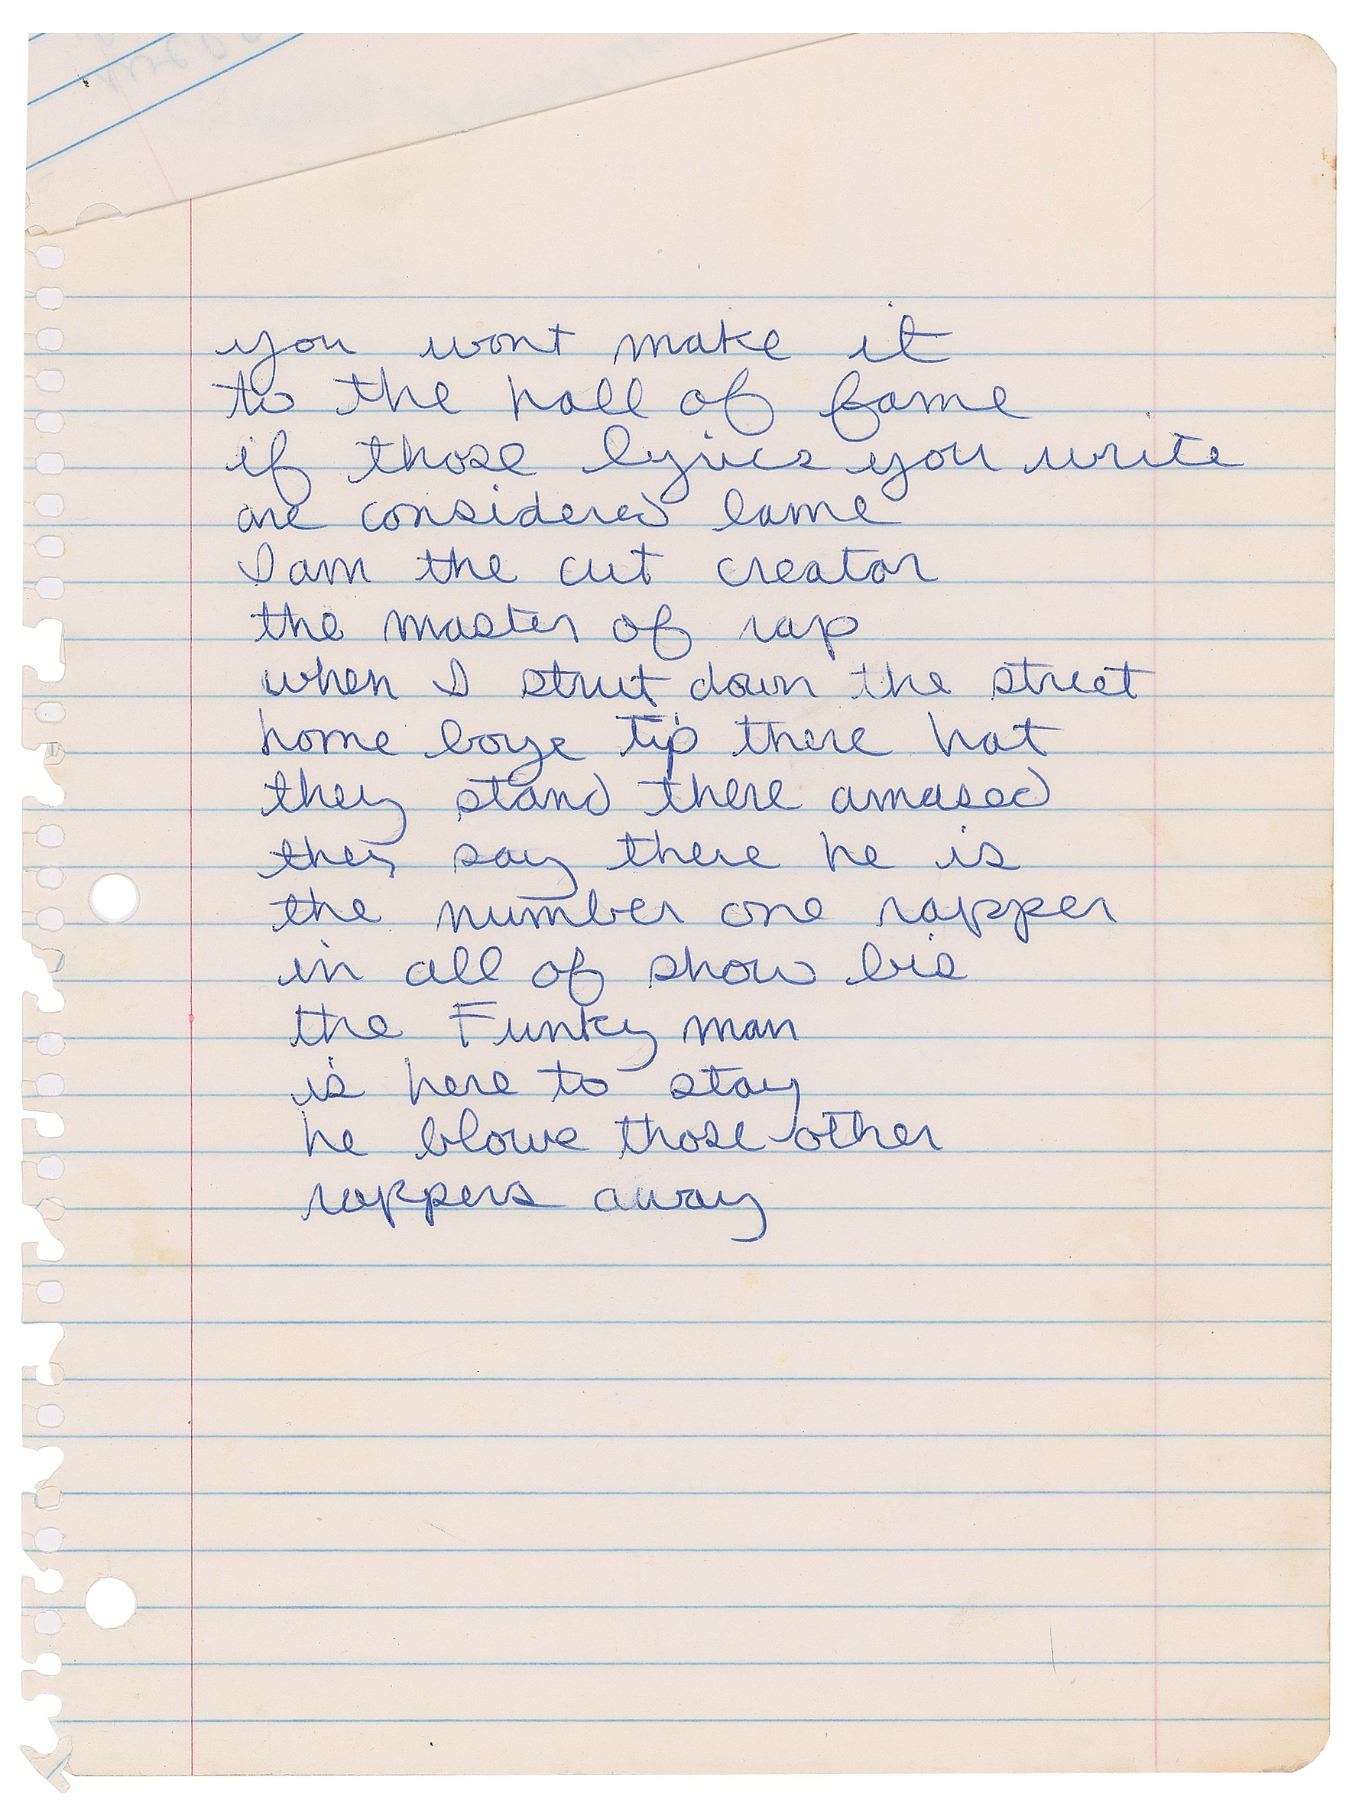 you wont make it
to the hall of fame
if those lyrics you write
are considered lame
I am the cut creator
the master of rap
when I strut down the street
home boys tip there hat
they stand there amased
they say there he is
the number one rapper
in all of show bis
the Funky man
is here to stay
he blows those other
rappers away